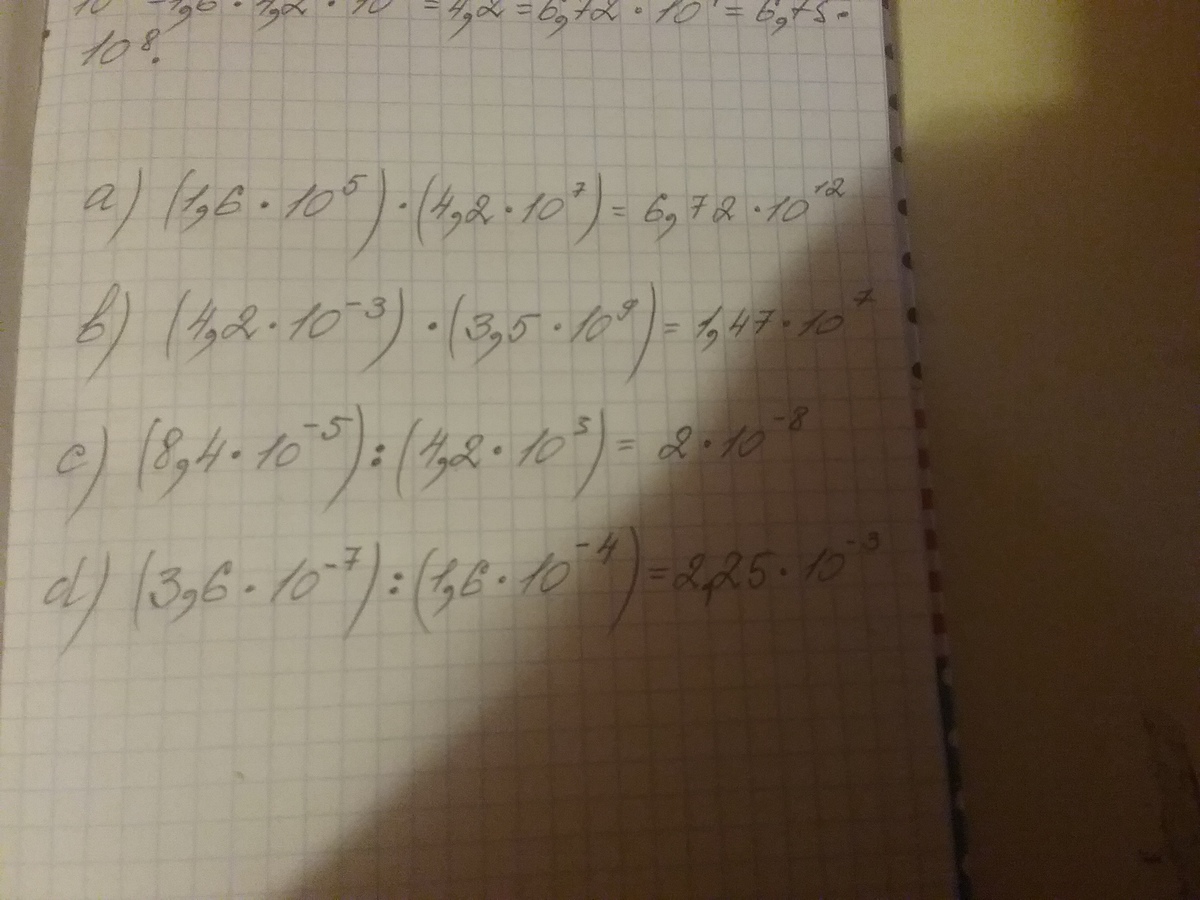 10 - 1,6 · 4,2 · 10 = 4,2 = 6,72 · 10 = 6,75 ·
10⁸.
a) (1,6 · 10⁵) · (4,2 · 10⁷) = 6,72 · 10¹²
b) (4,2 · 10⁻³) · (3,5 · 10⁹) = 1,47 · 10⁷
c) (8,4 · 10⁻⁵) : (4,2 · 10³) = 2 · 10⁻⁸
d) (3,6 · 10⁻⁷) : (1,6 · 10⁻⁴) = 2,25 · 10⁻³